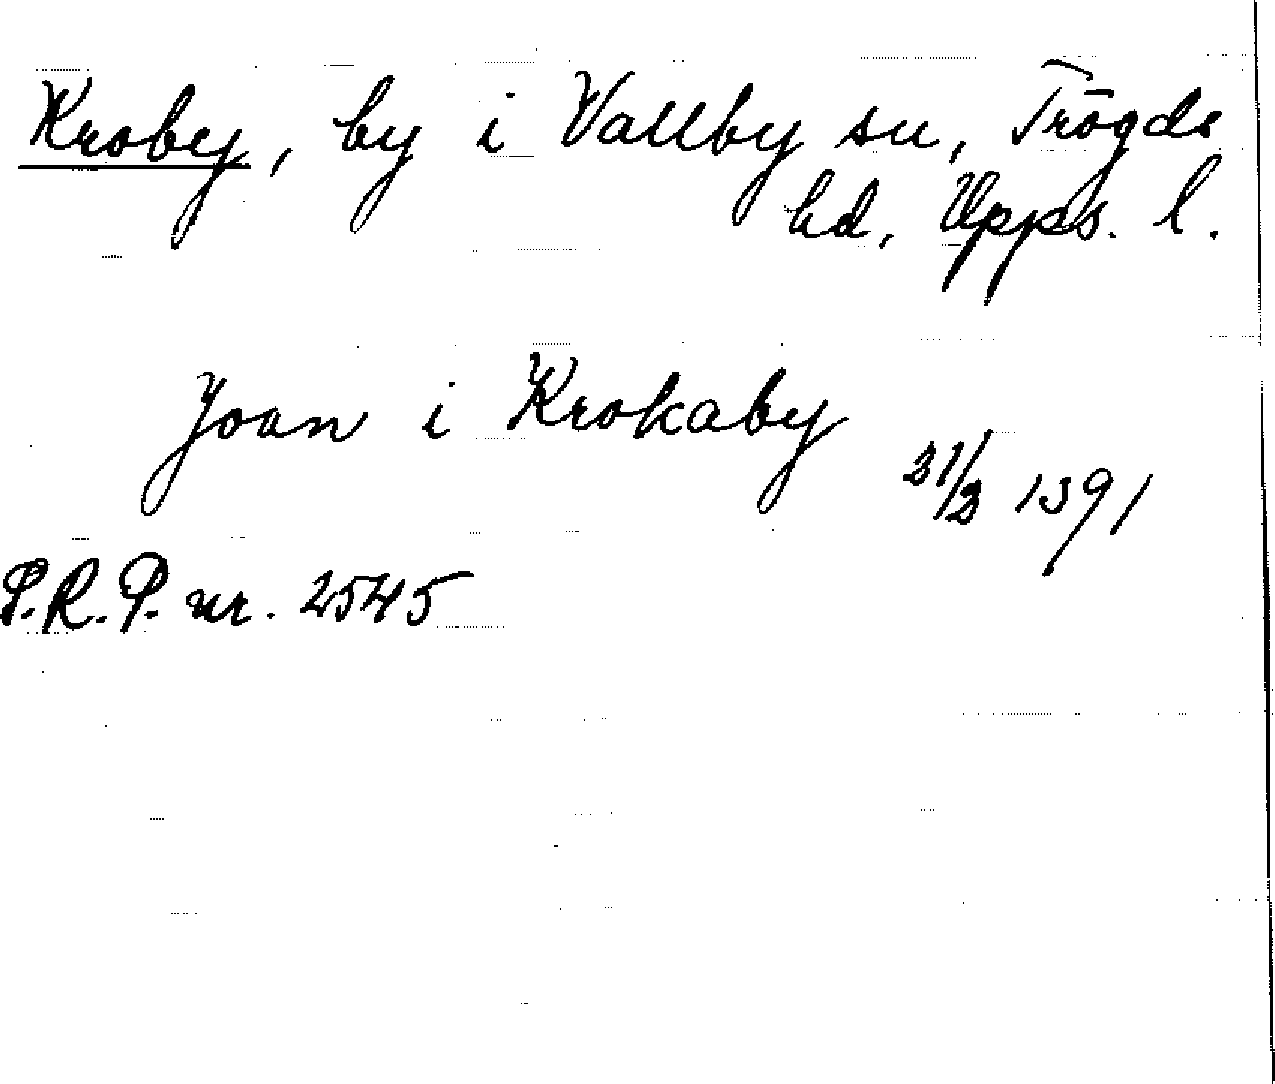 Kroby, by i Vallby sn, Trögds
hd, Upps. l.
Joan i Krokaby
31/3 1391
P.R.P. nr. 2545